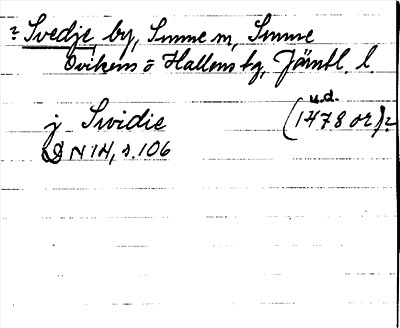 ? Svedje, by, Sunne sn, Sunne
Ovikens o Hallens tg, Jämtl. l.
u.d.
j Swidie (1478 or)?
DN 14, s. 106